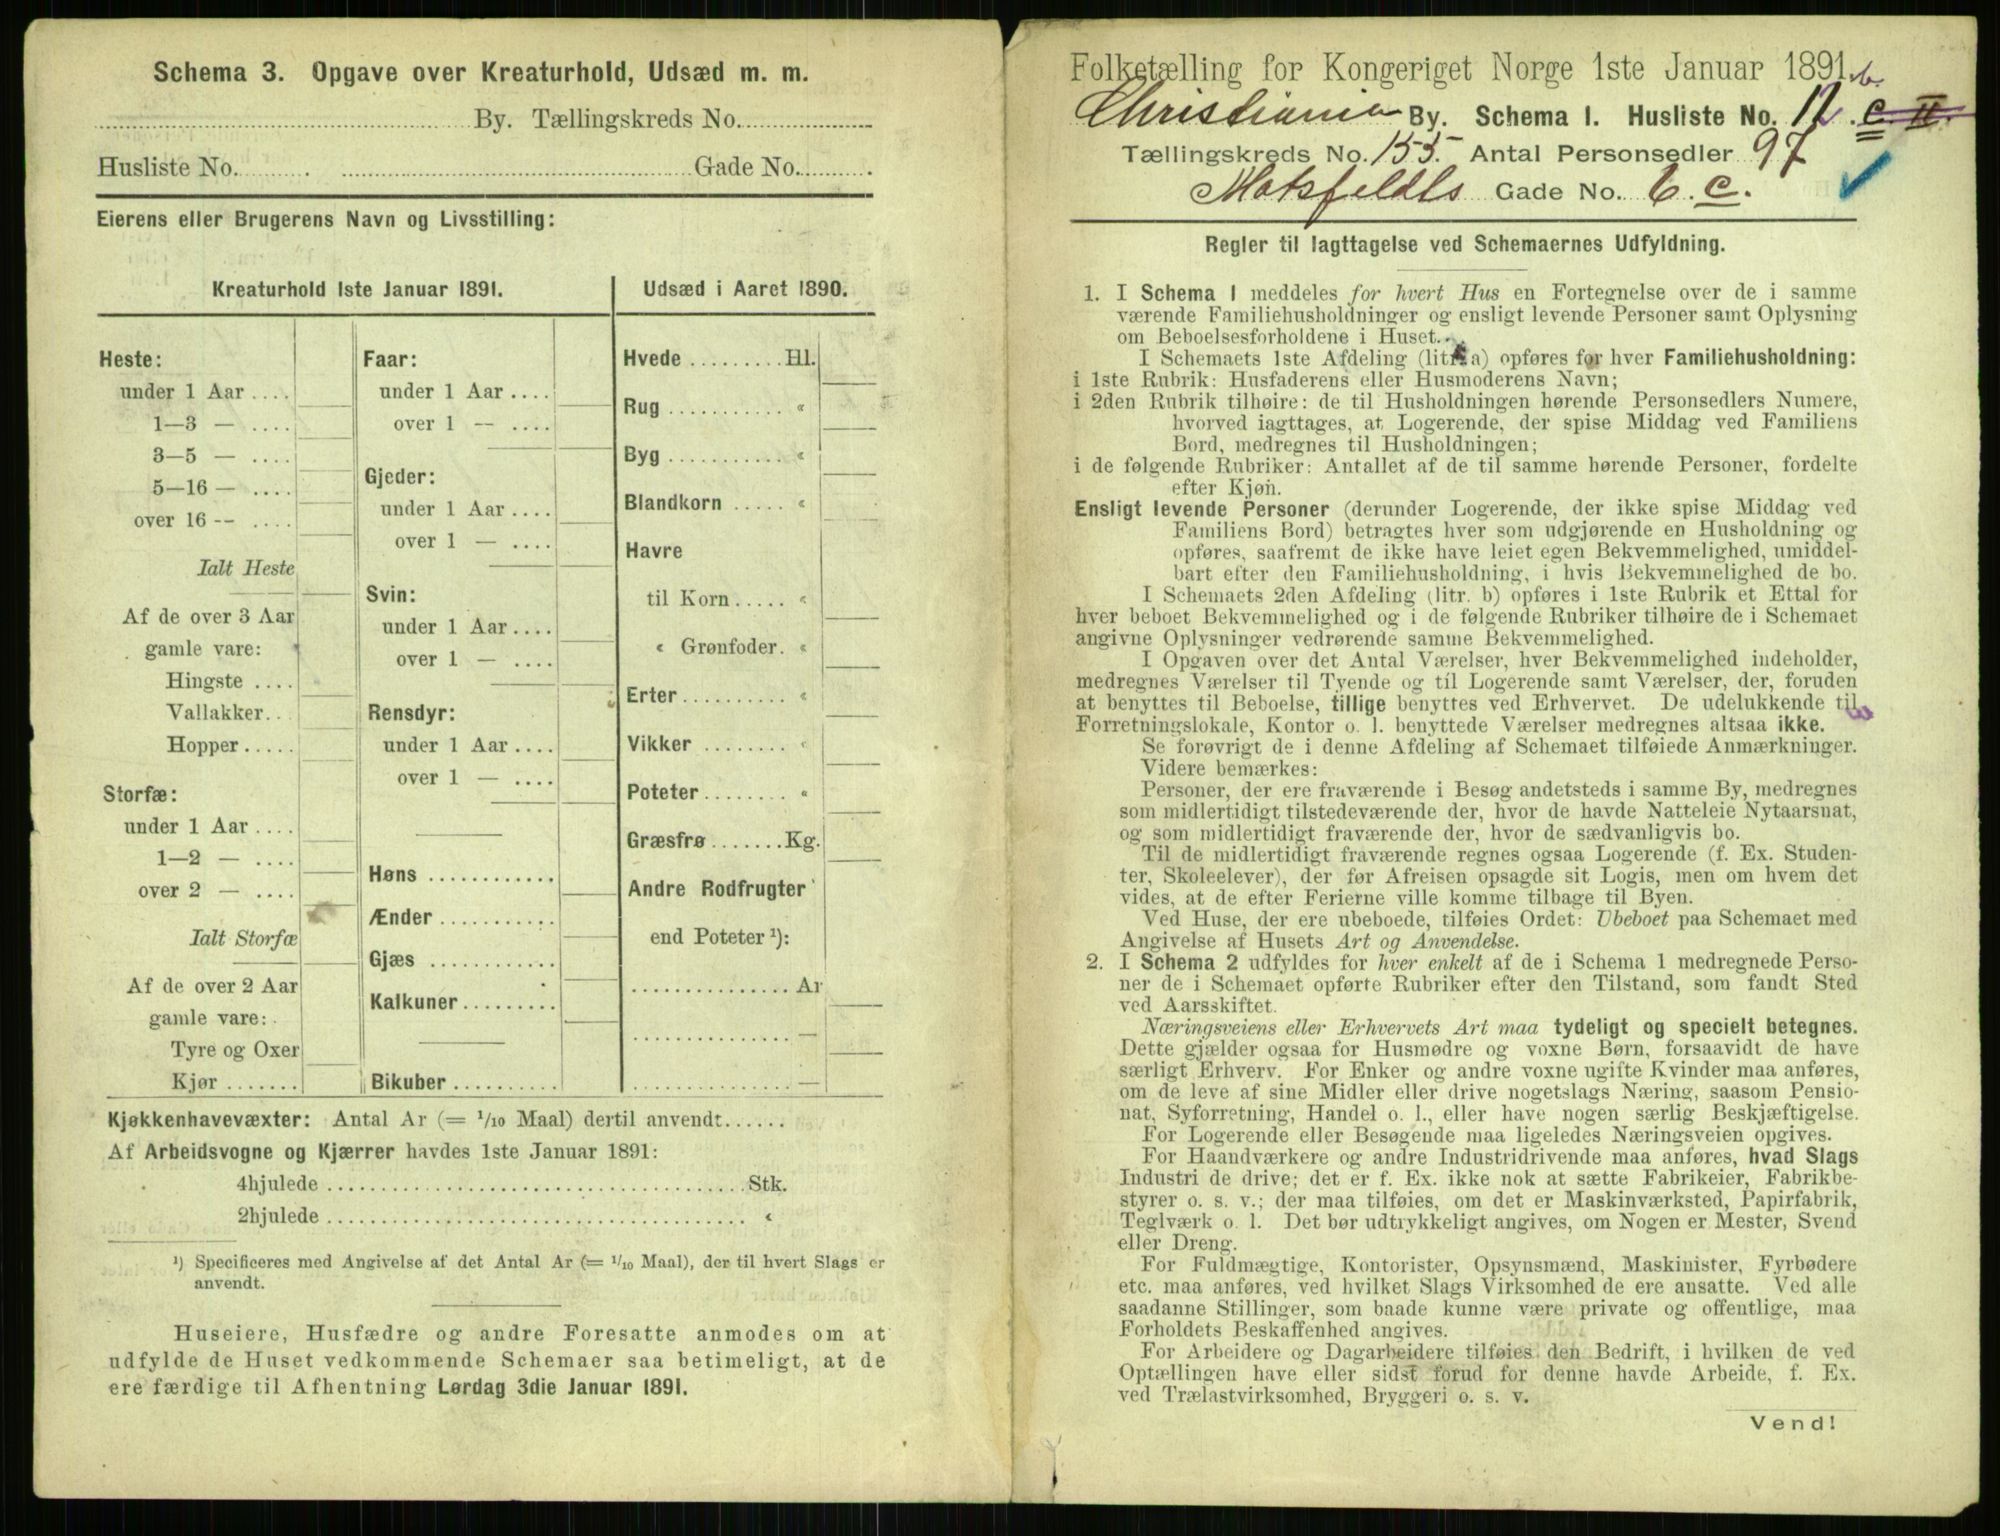 Schema 3. Opgave over Kreaturhold, Udsæd m. m.
By. Tællingskreds No.
Husliste No. Gade No.
Eierens eller Brugerens Navn og Livsstilling:
Kreaturhold 1ste Januar 1891.
Heste:
under 1 Aar
1—3 —
3—5 —
5—16 —
over 16 --
Ialt Heste
Af de over 3 Aar
gamle vare:
Hingste
Vallakker
Hopper
Storfæ:
under 1 Aar
1—2 —
over 2 —
Ialt Storfæ
Af de over 2 Aar
gamle vare:
Tyre og Oxer
Kjør
Faar:
under 1 Aar
over 1 —
Gjeder:
under 1 Aar
over 1 —
Svin:
under 1 Aar
over 1 —
Rensdyr:
under 1 Aar
over 1 —
Høns
Ænder
Gjæs
Kalkuner
Bikuber
Udsæd i Aaret 1890.
Hvede Hl.
Rug «
Byg «
Blandkorn «
Havre
til Korn «
« Grønfoder. «
Erter «
Vikker «
Poteter «
Græsfrø Kg.
Andre Rodfrugter
end Poteter ¹):
Ar
—
—
Kjøkkenhavevæxter: Antal Ar (= ¹/₁₀ Maal) dertil anvendt
Af Arbeidsvogne og Kjærrer havdes 1ste Januar 1891:
4hjulede Stk.
2hjulede «
¹) Specificeres med Angivelse af det Antal Ar (= ¹/₁₀ Maal), der til hvert Slags er
anvendt.
Huseiere, Husfædre og andre Foresatte anmodes om at
udfylde de Huset vedkommende Schemaer saa betimeligt, at de
ere færdige til Afhentning Lørdag 3die Januar 1891.
Folketælling for Kongeriget Norge 1ste Januar 1891.
Christiania By. Schema 1. Husliste No. 12 b. c. II.
Tællingskreds No. 155. Antal Personsedler 97
Motzfeldts Gade No. 6. c.
Regler til Iagttagelse ved Schemaernes Udfyldning.
1. I Schema 1 meddeles for hvert Hus en Fortegnelse over de i samme
værende Familiehusholdninger og ensligt levende Personer samt Oplysning
om Beboelsesforholdene i Huset.
I Schemaets 1ste Afdeling (litra a) opføres for hver Familiehusholdning:
i 1ste Rubrik: Husfaderens eller Husmoderens Navn;
i 2den Rubrik tilhøire: de til Husholdningen hørende Personsedlers Numere,
hvorved iagttages, at Logerende, der spise Middag ved Familiens
Bord, medregnes til Husholdningen;
i de følgende Rubriker: Antallet af de til samme hørende Personer, fordelte
efter Kjøn.
Ensligt levende Personer (derunder Logerende, der ikke spise Middag ved
Familiens Bord) betragtes hver som udgjørende en Husholdning og
opføres, saafremt de ikke have leiet egen Bekvemmelighed, umiddel-
bart efter den Familiehusholdning, i hvis Bekvemmelighed de bo.
I Schemaets 2den Afdeling (litr. b) opføres i 1ste Rubrik et Ettal for
hver beboet Bekvemmelighed og i de følgende Rubriker tilhøire de i Schemaet
angivne Oplysninger vedrørende samme Bekvemmelighed.
I Opgaven over det Antal Værelser, hver Bekvemmelighed indeholder,
medregnes Værelser til Tyende og til Logerende samt Værelser, der, foruden
at benyttes til Beboelse, tillige benyttes ved Erhvervet. De udelukkende til
Forretningslokale, Kontor o. l. benyttede Værelser medregnes altsaa ikke.
Se forøvrigt de i denne Afdeling af Schemaet tilføiede Anmærkninger.
Videre bemærkes:
Personer, der ere fraværende i Besøg andetsteds i samme By, medregnes
som midlertidigt tilstedeværende der, hvor de havde Natteleie Nytaarsnat,
og som midlertidigt fraværende der, hvor de sædvanligvis bo.
Til de midlertidigt fraværende regnes ogsaa Logerende (f. Ex. Studen-
ter, Skoleelever), der før Afreisen opsagde sit Logis, men om hvem det
vides, at de efter Ferierne ville komme tilbage til Byen.
Ved Huse, der ere ubeboede, tilføies Ordet: Ubeboet paa Schemaet med
Angivelse af Husets Art og Anvendelse.
2. I Schema 2 udfyldes for hver enkelt af de i Schema 1 medregnede Perso-
ner de i Schemaet opførte Rubriker efter den Tilstand, som fandt Sted
ved Aarsskiftet.
Næringsveiens eller Erhvervets Art maa tydeligt og specielt betegnes.
Dette gjælder ogsaa for Husmødre og voxne Børn, forsaavidt de have
særligt Erhverv. For Enker og andre voxne ugifte Kvinder maa anføres,
om de leve af sine Midler eller drive nogetslags Næring, saasom Pensio-
nat, Syforretning, Handel o. l., eller have nogen særlig Beskjæftigelse.
For Logerende eller Besøgende maa ligeledes Næringsveien opgives.
For Haandværkere og andre Industridrivende maa anføres, hvad Slags
Industri de drive; det er f. Ex. ikke nok at sætte Fabrikeier, Fabrikbe-
styrer o. s. v.; der maa tilføies, om det er Maskinværksted, Papirfabrik,
Teglværk o. l. Det bør udtrykkeligt angives, om Nogen er Mester, Svend
eller Dreng.
For Fuldmægtige, Kontorister, Opsynsmænd, Maskinister, Fyrbødere
etc. maa anføres, ved hvilket Slags Virksomhed de ere ansatte. Ved alle
saadanne Stillinger, som baade kunne være private og offentlige, maa
Forholdets Beskaffenhed angives.
For Arbeidere og Dagarbeidere tilføies den Bedrift, i hvilken de ved
Optællingen have eller sidst forud for denne havde Arbeide, f. Ex.
ved Trælastvirksomhed, Bryggeri o. s. v.
Vend!